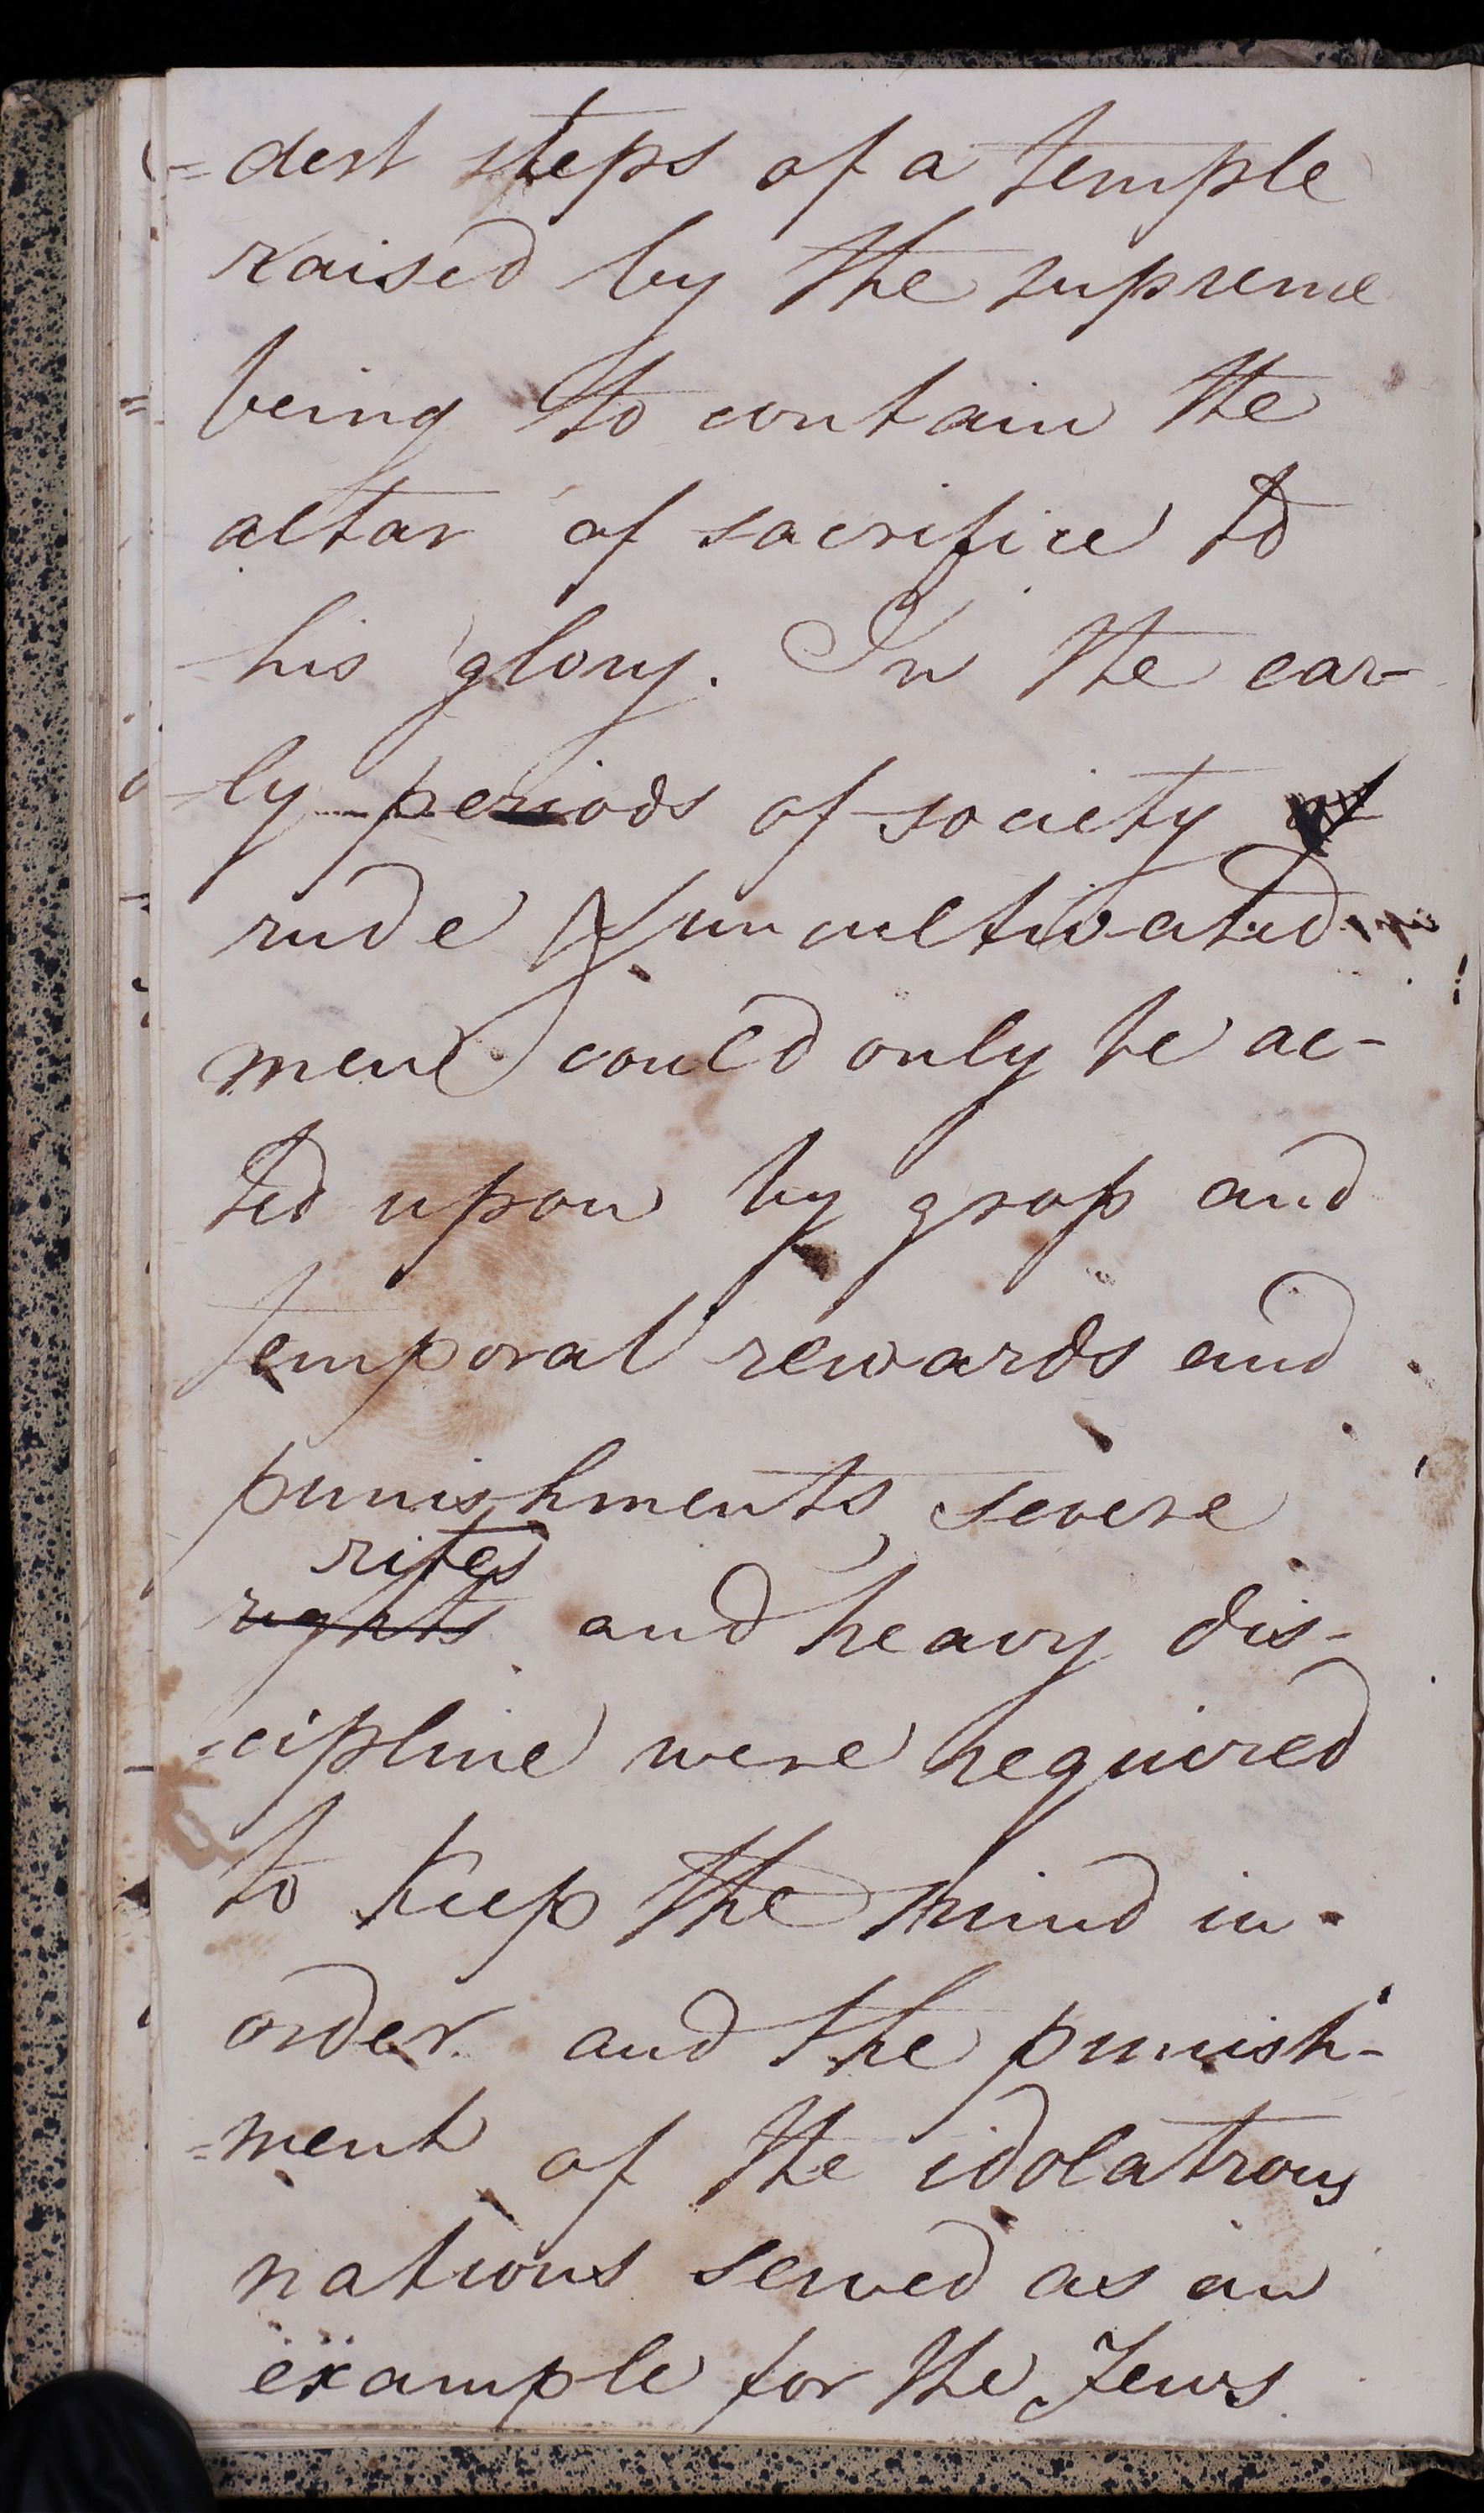 =dest steps of a temple
raised by the supreme
being to contain the
altar of sacrifice to
his glory. In the ear-
ly periods of society
rude & uncultivated
mend could only be ac-
ted upon by gross and
temporal rewards and
punishments, severe
rites
rights and heavy dis-
=cipline were required
to keep the mind in
order. and the punish-
=ment of the idolatrous
nations served as an
example for the Jews